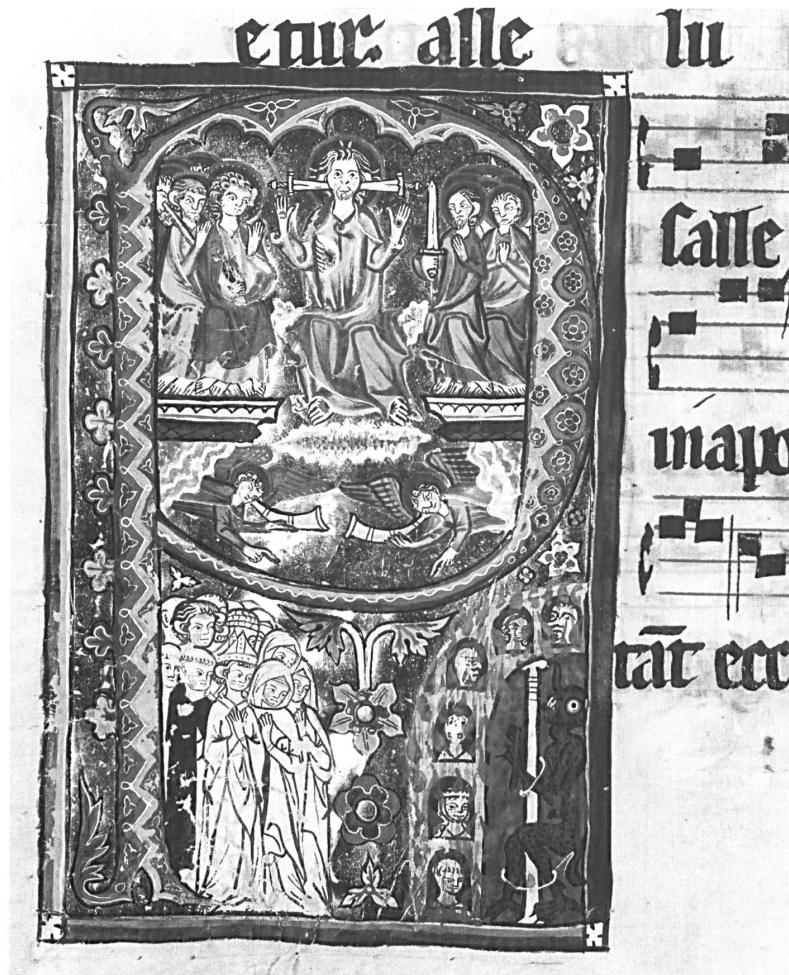 etur: alle lu
salle
mapo
tāt ecc